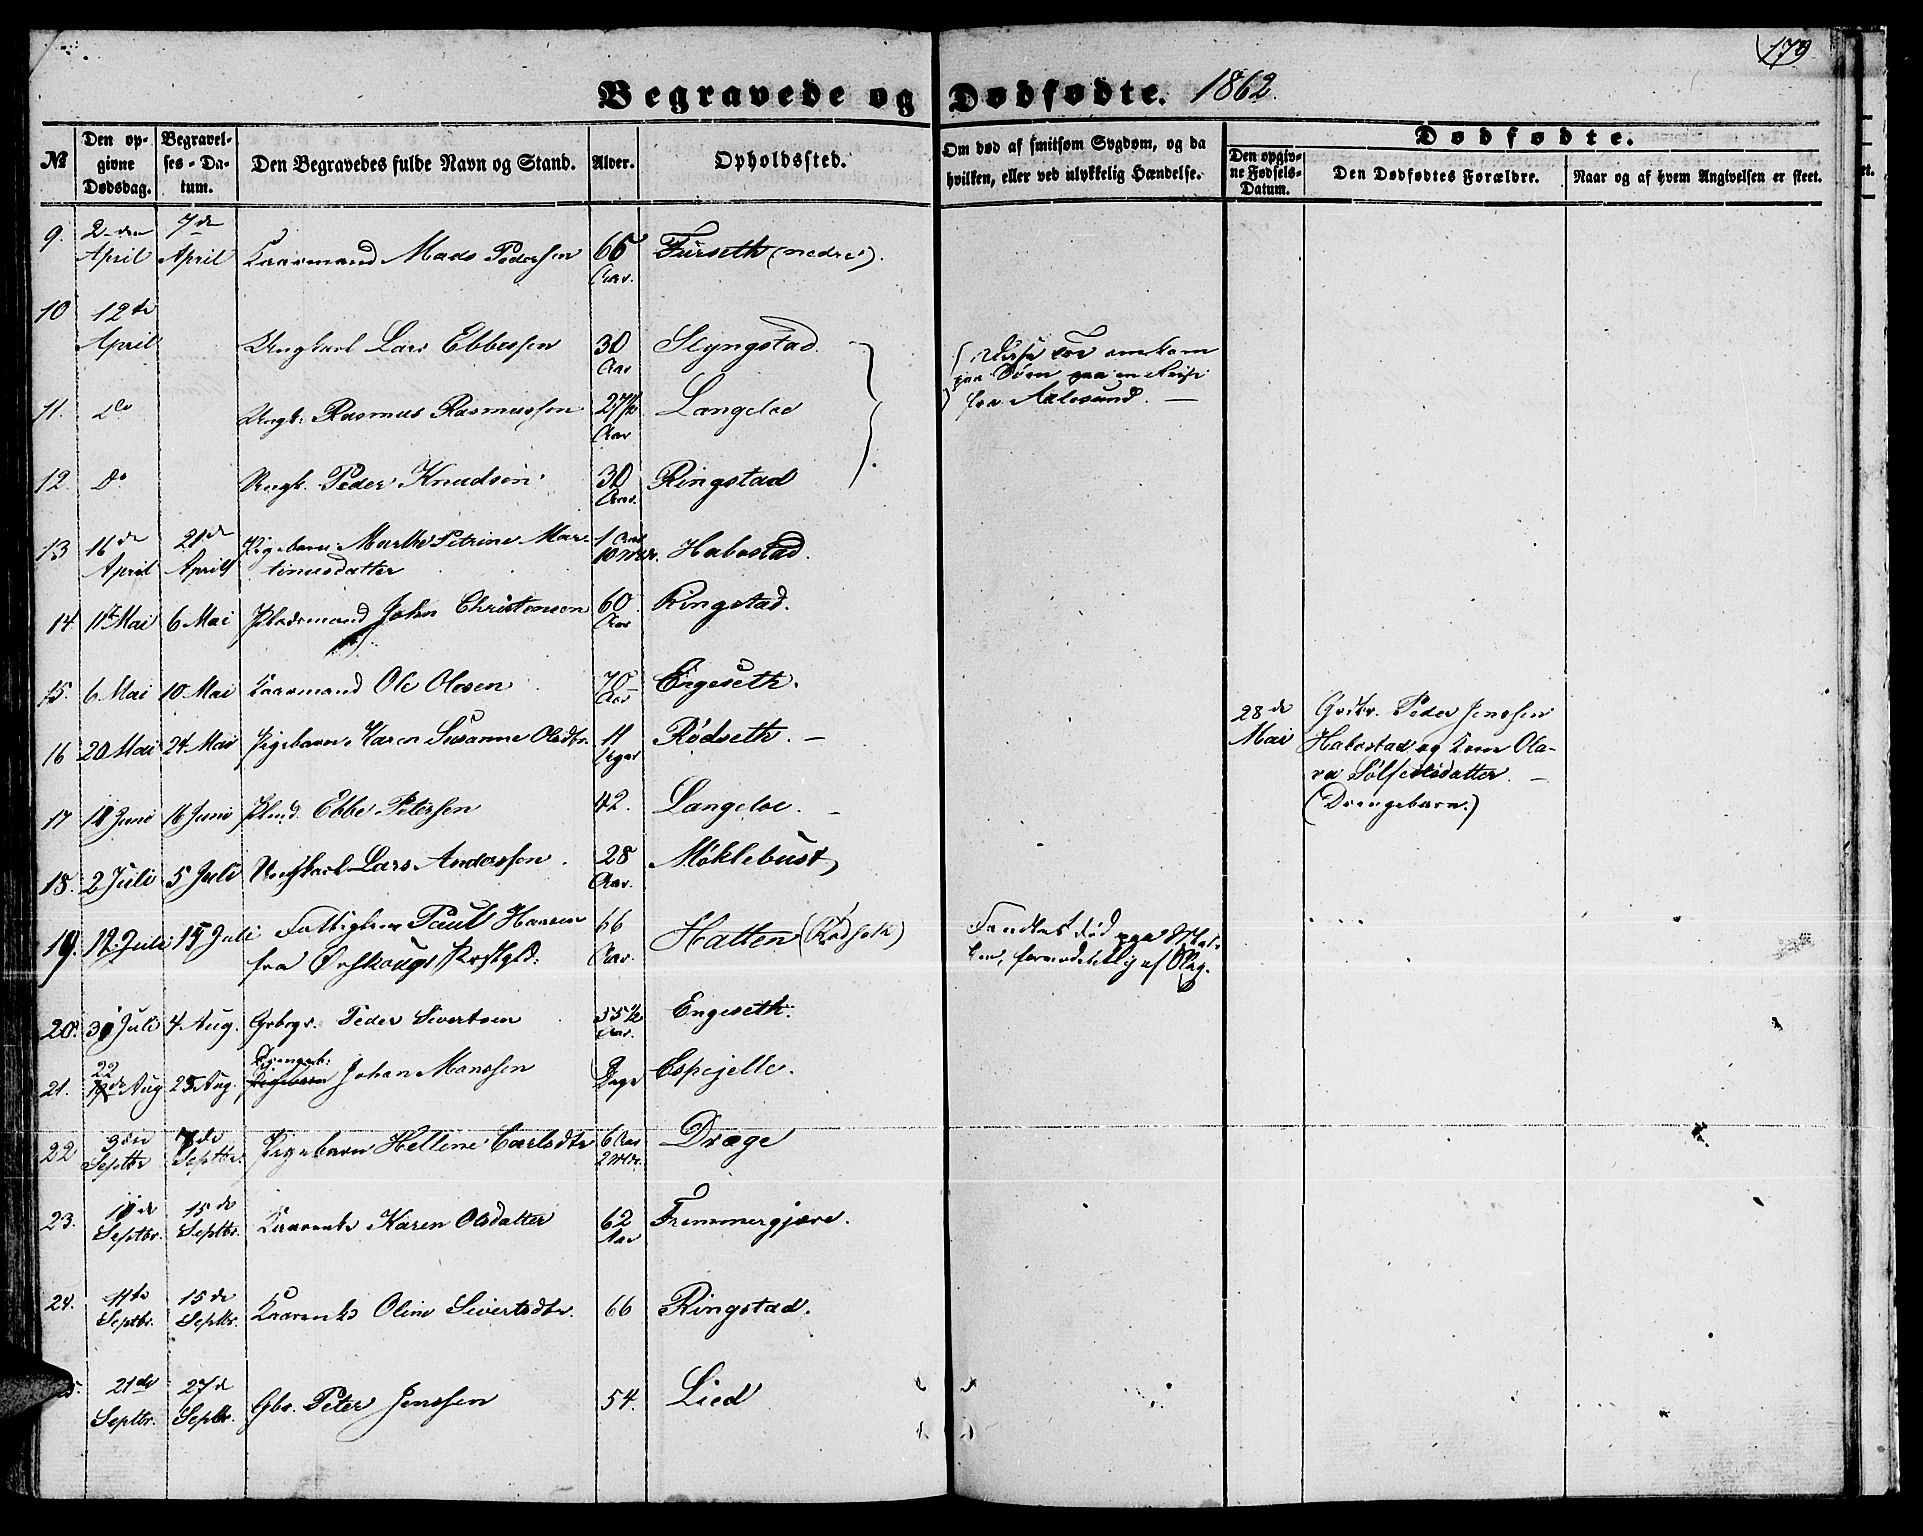 179
Begravede og Dødfødte. 1862.
№
Den opgivne Dødsdag.
Begravelses-Datum.
Den Begravedes fulde Navn og Stand.
Alder.
Opholdssted.
Om død af smitsom Sygdom, og da
hvilken, eller ved ulykkelig Hændelse.
Dødfødte.
Den opgivne Fødsels-Datum.
Den Dødfødtes Forældre.
Naar og af hvem Angivelsen er skeet.
9. 2den April 7de April Kaarmand Mads Pedersen 66 Aar. Furseth (nedre).
10 12te April Ungkarl Lars Ebbessen 30 Aar Slyngstad.
Disse tre omkom
paa Søen paa en Reise
fra Aalesund. —
11. Do Ungk. Rasmus Rasmussen 27½ Aar Langeloe
12. Do Ungk. Peder Knudsen 30 Aar. Ringstad
13 16de April 21de April Pigebarn Marthe Petrine Mar-
tinusdatter 1 Aar 10 Mdr. Habostad.
14 1ste Mai 6 Mai Pladsmand John Christensen 60 Aar Ringstad.
15. 6 Mai 10 Mai Kaarmand Ole Olesen 70 Aar Engeseth.
16 20 Mai 24 Mai Pigebarn Karen Susanne Olsdtr. 11 Uger Rødseth. —
28de Mai
Grdbr. Peder Jenssen
Habostad og Kone Ola-
va Sølfestsdatter. —
(Drengebarn.)
17 11 Juni 16 Juni Plmd. Ebbe Petersen 42. Langeloe. —
18. 2 Juli 5 Juli Ungkarl Lars Anderssen. 28 Aar. Møklebust
19. 12 Juli 15 Juli Fattiglem Paul Hansen
fra Ørskougs Præstgld. 66 Aar. Hatten (Rødseth)
Fandtes død paa Mar-
ken, formodentlig af Slag.
20. 30 Juli 4 Aug. Grbrgr. Peder Sivertsen 55½ Aar. Engeseth.
21. 22de Aug 25 Aug. Drengeb. Johan Monssen Dage Espejelle.
22 3die Septbr 7de Septbr. Pigebarn Hellene Carlsdtr 6 Aar 2 Mdr. Drage
23. 11de Septbr. 15de Septbr. Kaarenke Karen Olsdatter 62 Aar Fremmergjære.
24. 11te Septbr. 15de Septbr. Kaarenke Oline Sivertsdtr. 66 Ringstad.
21de Septbr. 27de Septbr. Gbr. Peter Jenssen 54. Lied